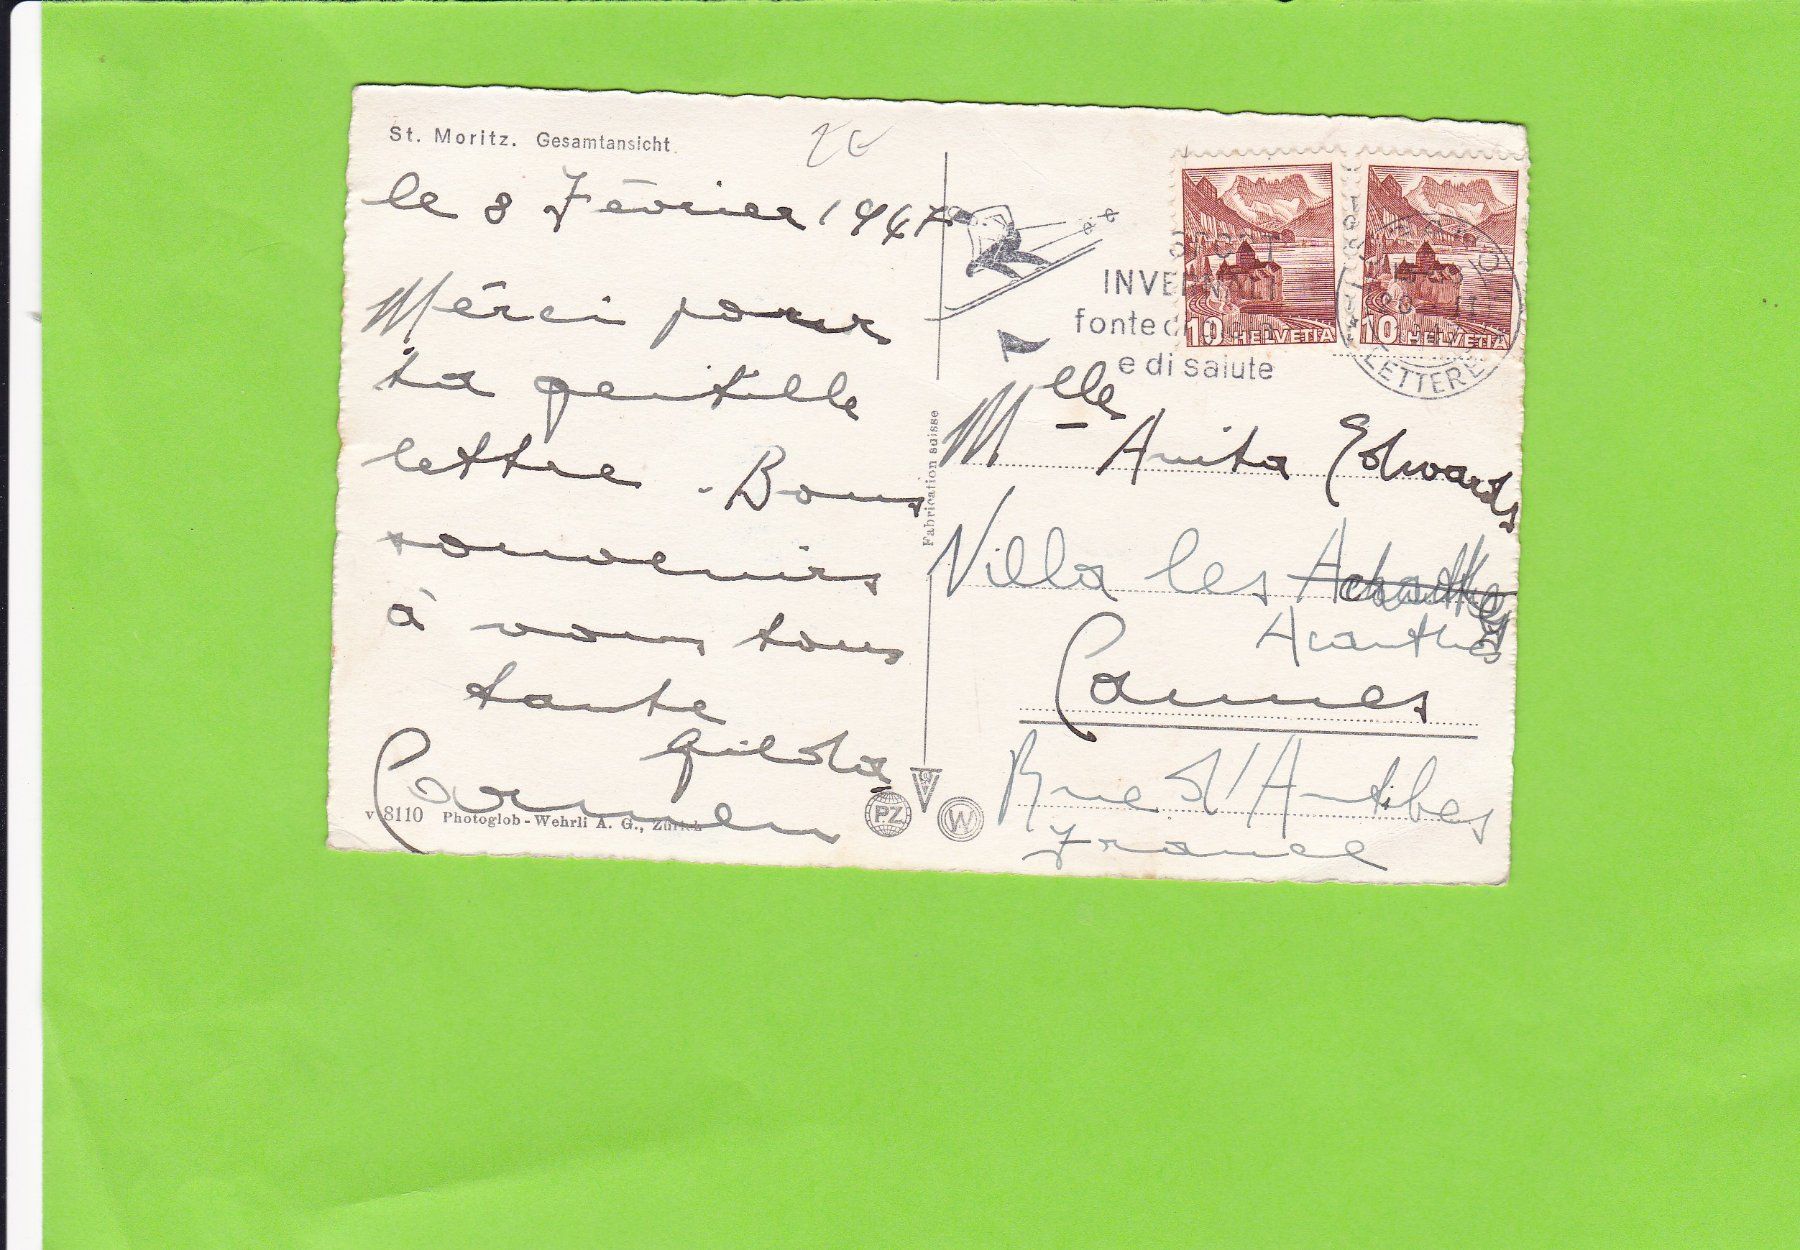 St. Moritz. Gesamtansicht.
2€
le 8 Février 1947
Mérci pour
ta gentille
lettre - Bons
souvenirs
à vous tous
tante
Gilda
Carmen
v 8110 Photoglob-Wehrli A. G., Zürich
Fabrication suisse
PZ
W
SPORT
INVERNALI
fonte di
e di salute
LETTERE
10 HELVETIA
10 HELVETIA
Mlle Anita Edwards
Villa les
Acanthes
Cannes
Rue d'Antibes
France